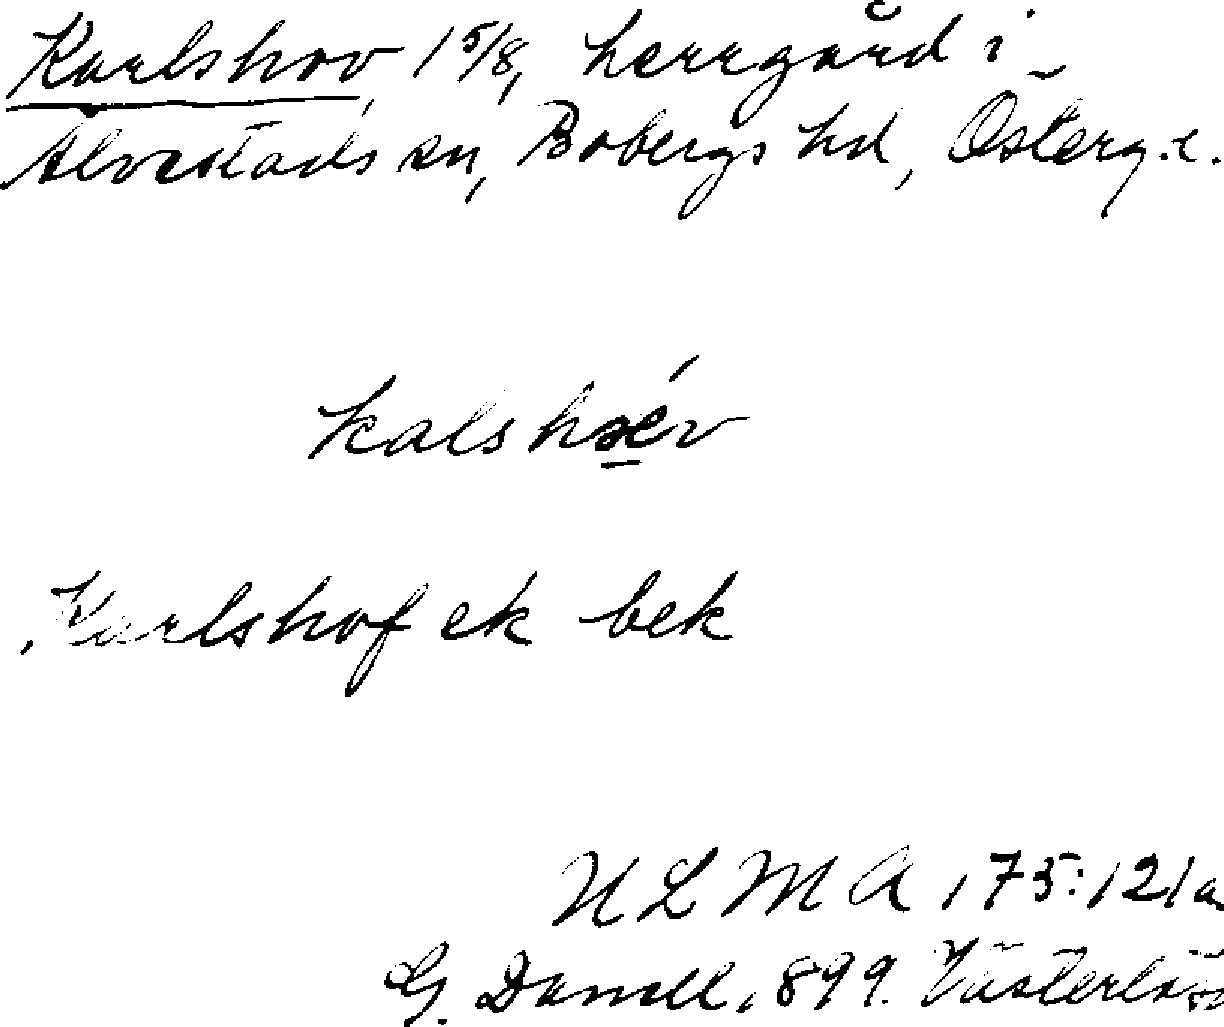 Karlshov 1 5/8, herrgård i
Alvestads sn, Bobergs hd, Österg. l.
kalshǿv
Karlshof ek bek
ULMA 175:121a
G. Danell, 1899. Västerlösa